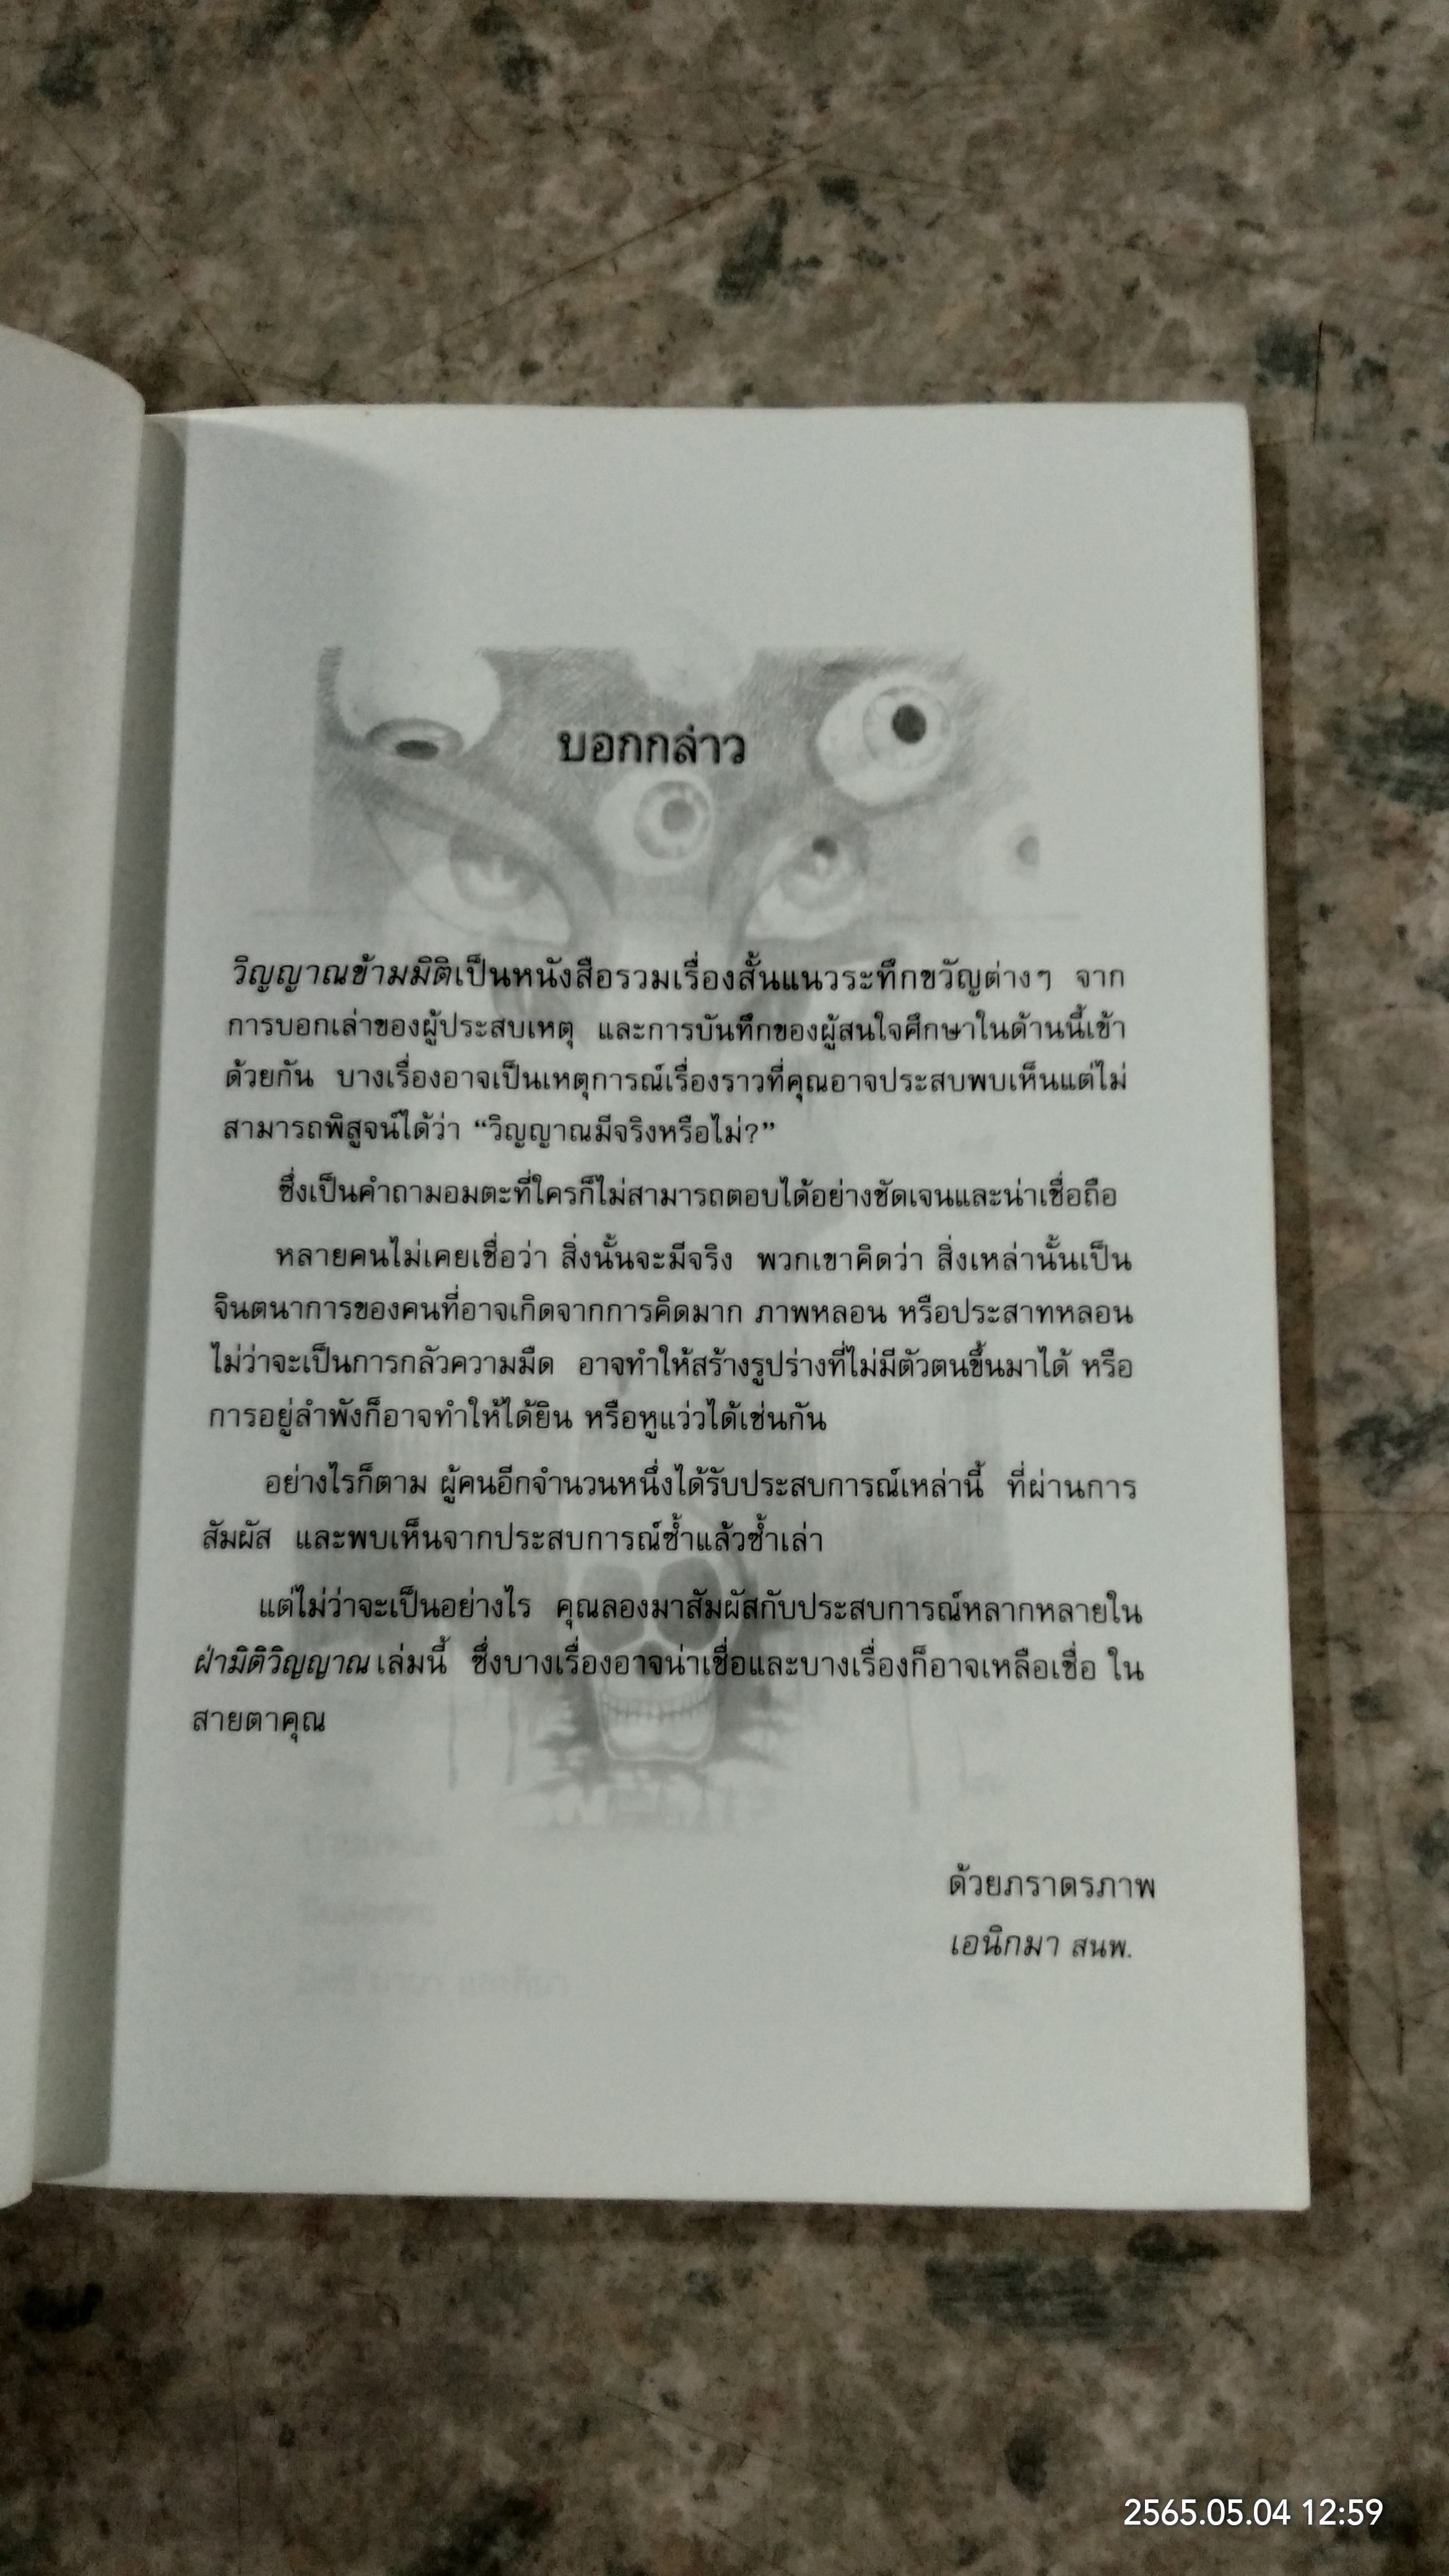 บอกกล่าว
วิญญาณข้ามมิติเป็นหนังสือรวมเรื่องสั้นแนวระทึกขวัญต่างๆ จาก
การบอกเล่าของผู้ประสบเหตุ และการบันทึกของผู้สนใจศึกษาในด้านนี้เข้า
ด้วยกัน บางเรื่องอาจเป็นเหตุการณ์เรื่องราวที่คุณอาจประสบพบเห็นแต่ไม่
สามารถพิสูจน์ได้ว่า “วิญญาณมีจริงหรือไม่?”
ซึ่งเป็นคำถามอมตะที่ใครก็ไม่สามารถตอบได้อย่างชัดเจนและน่าเชื่อถือ
หลายคนไม่เคยเชื่อว่า สิ่งนั้นจะมีจริง พวกเขาคิดว่า สิ่งเหล่านั้นเป็น
จินตนาการของคนที่อาจเกิดจากการคิดมาก ภาพหลอน หรือประสาทหลอน
ไม่ว่าจะเป็นการกลัวความมืด อาจทำให้สร้างรูปร่างที่ไม่มีตัวตนขึ้นมาได้ หรือ
การอยู่ลำพังก็อาจทำให้ได้ยิน หรือหูแว่วได้เช่นกัน
อย่างไรก็ตาม ผู้คนอีกจำนวนหนึ่งได้รับประสบการณ์เหล่านี้ ที่ผ่านการ
สัมผัส และพบเห็นจากประสบการณ์ซ้ำแล้วซ้ำเล่า
แต่ไม่ว่าจะเป็นอย่างไร คุณลองมาสัมผัสกับประสบการณ์หลากหลายใน
ฝ่ามิติวิญญาณ เล่มนี้ ซึ่งบางเรื่องอาจน่าเชื่อและบางเรื่องก็อาจเหลือเชื่อ ใน
สายตาคุณ
ด้วยภราดรภาพ
เอนิกมา สนพ.
2565.05.04 12:59